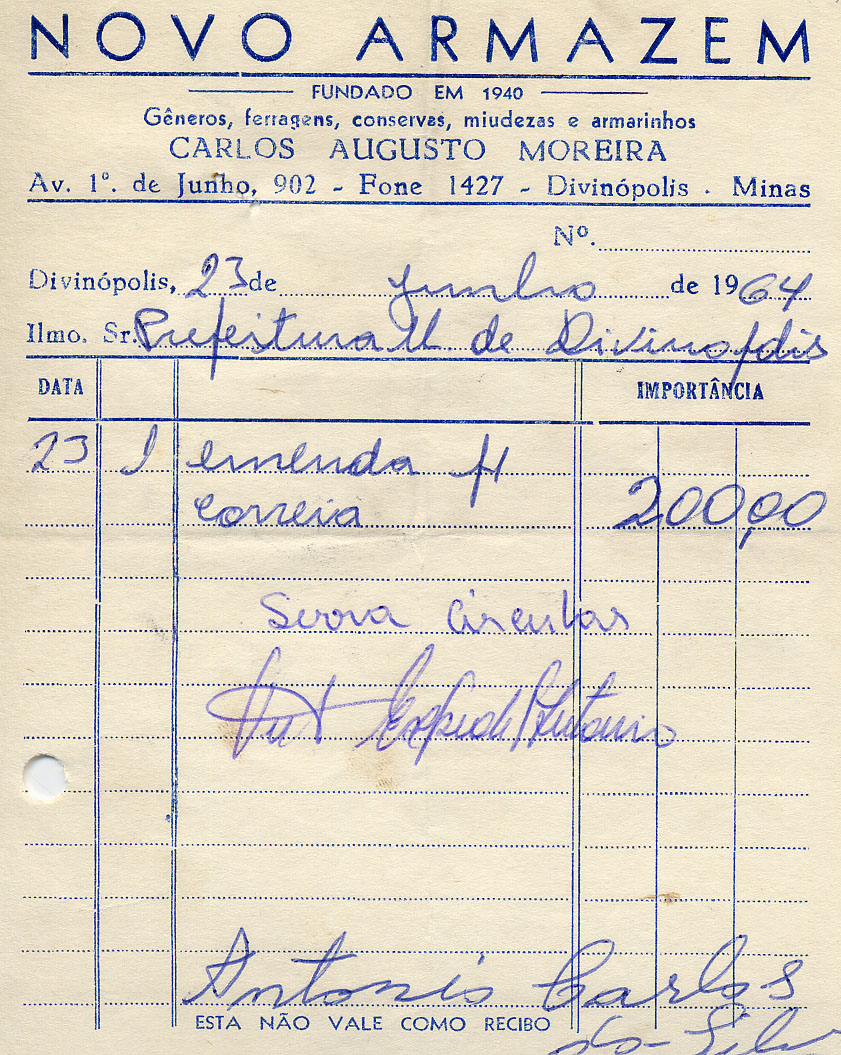 NOVO ARMAZEM
FUNDADO EM 1940
Gêneros, ferragens, conservas, miudezas e armarinhos
CARLOS AUGUSTO MOREIRA
Av. 1º. de Junho, 902 - Fone 1427 - Divinópolis - Minas
Nº.
Divinópolis, 23 de junho de 1964
Ilmo. Sr. Prefeitura M de Divinopolis
DATA IMPORTÂNCIA
23 1 emenda p/
correia 200,00
Serra Circular
Antonio Carlos
ESTA NÃO VALE COMO RECIBO
da Silva